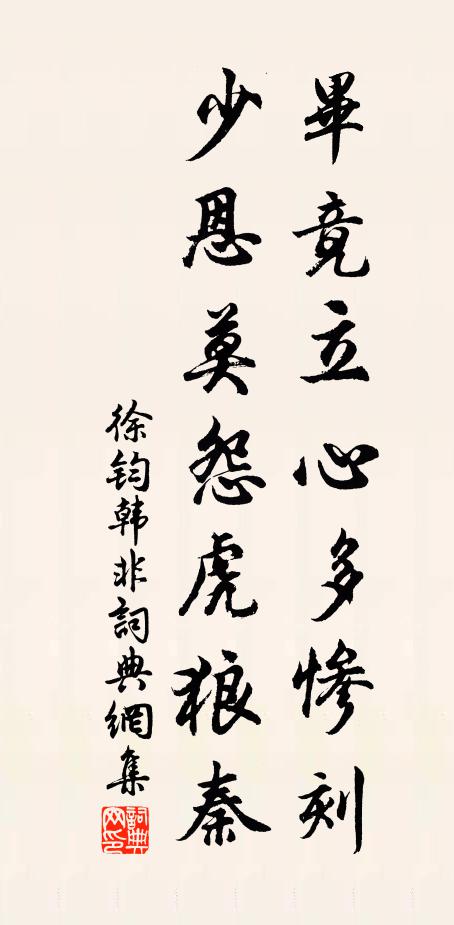 畢竟立心多慘刻
少恩莫怨虎狼秦
徐鈞韓非詞典網集
詞典網印